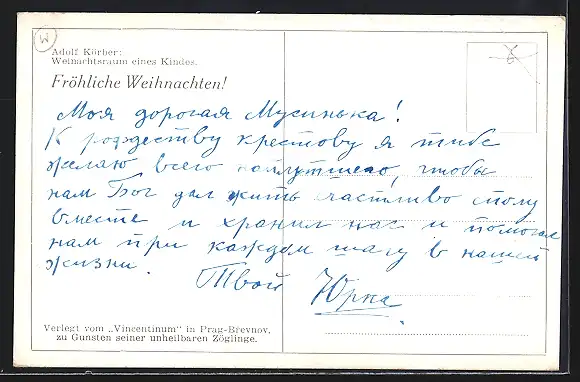 W
Adolf Körber:
Weinachtsraum eines Kindes.
Fröhliche Weihnachten!
Моя дорогая Мусинька!
К рождеству крестову я тибе
желаю всего найлутшего, чтобы
нам Бог дал жить счастливо столу
вместе и хранил нас и помогал
нам при каждом шагу в нашей
жизни.
Твой Юрка
Verlegt vom „Vincentinum“ in Prag-Břevnov,
zu Gunsten seiner unheilbaren Zöglinge.